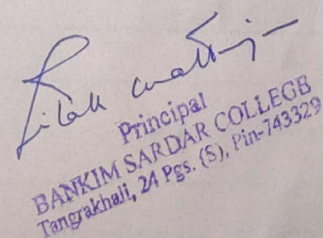 Principal
BANKIM SARDAR COLLEGE
Tangrakhali, 24 Pgs. (S), Pin-743329